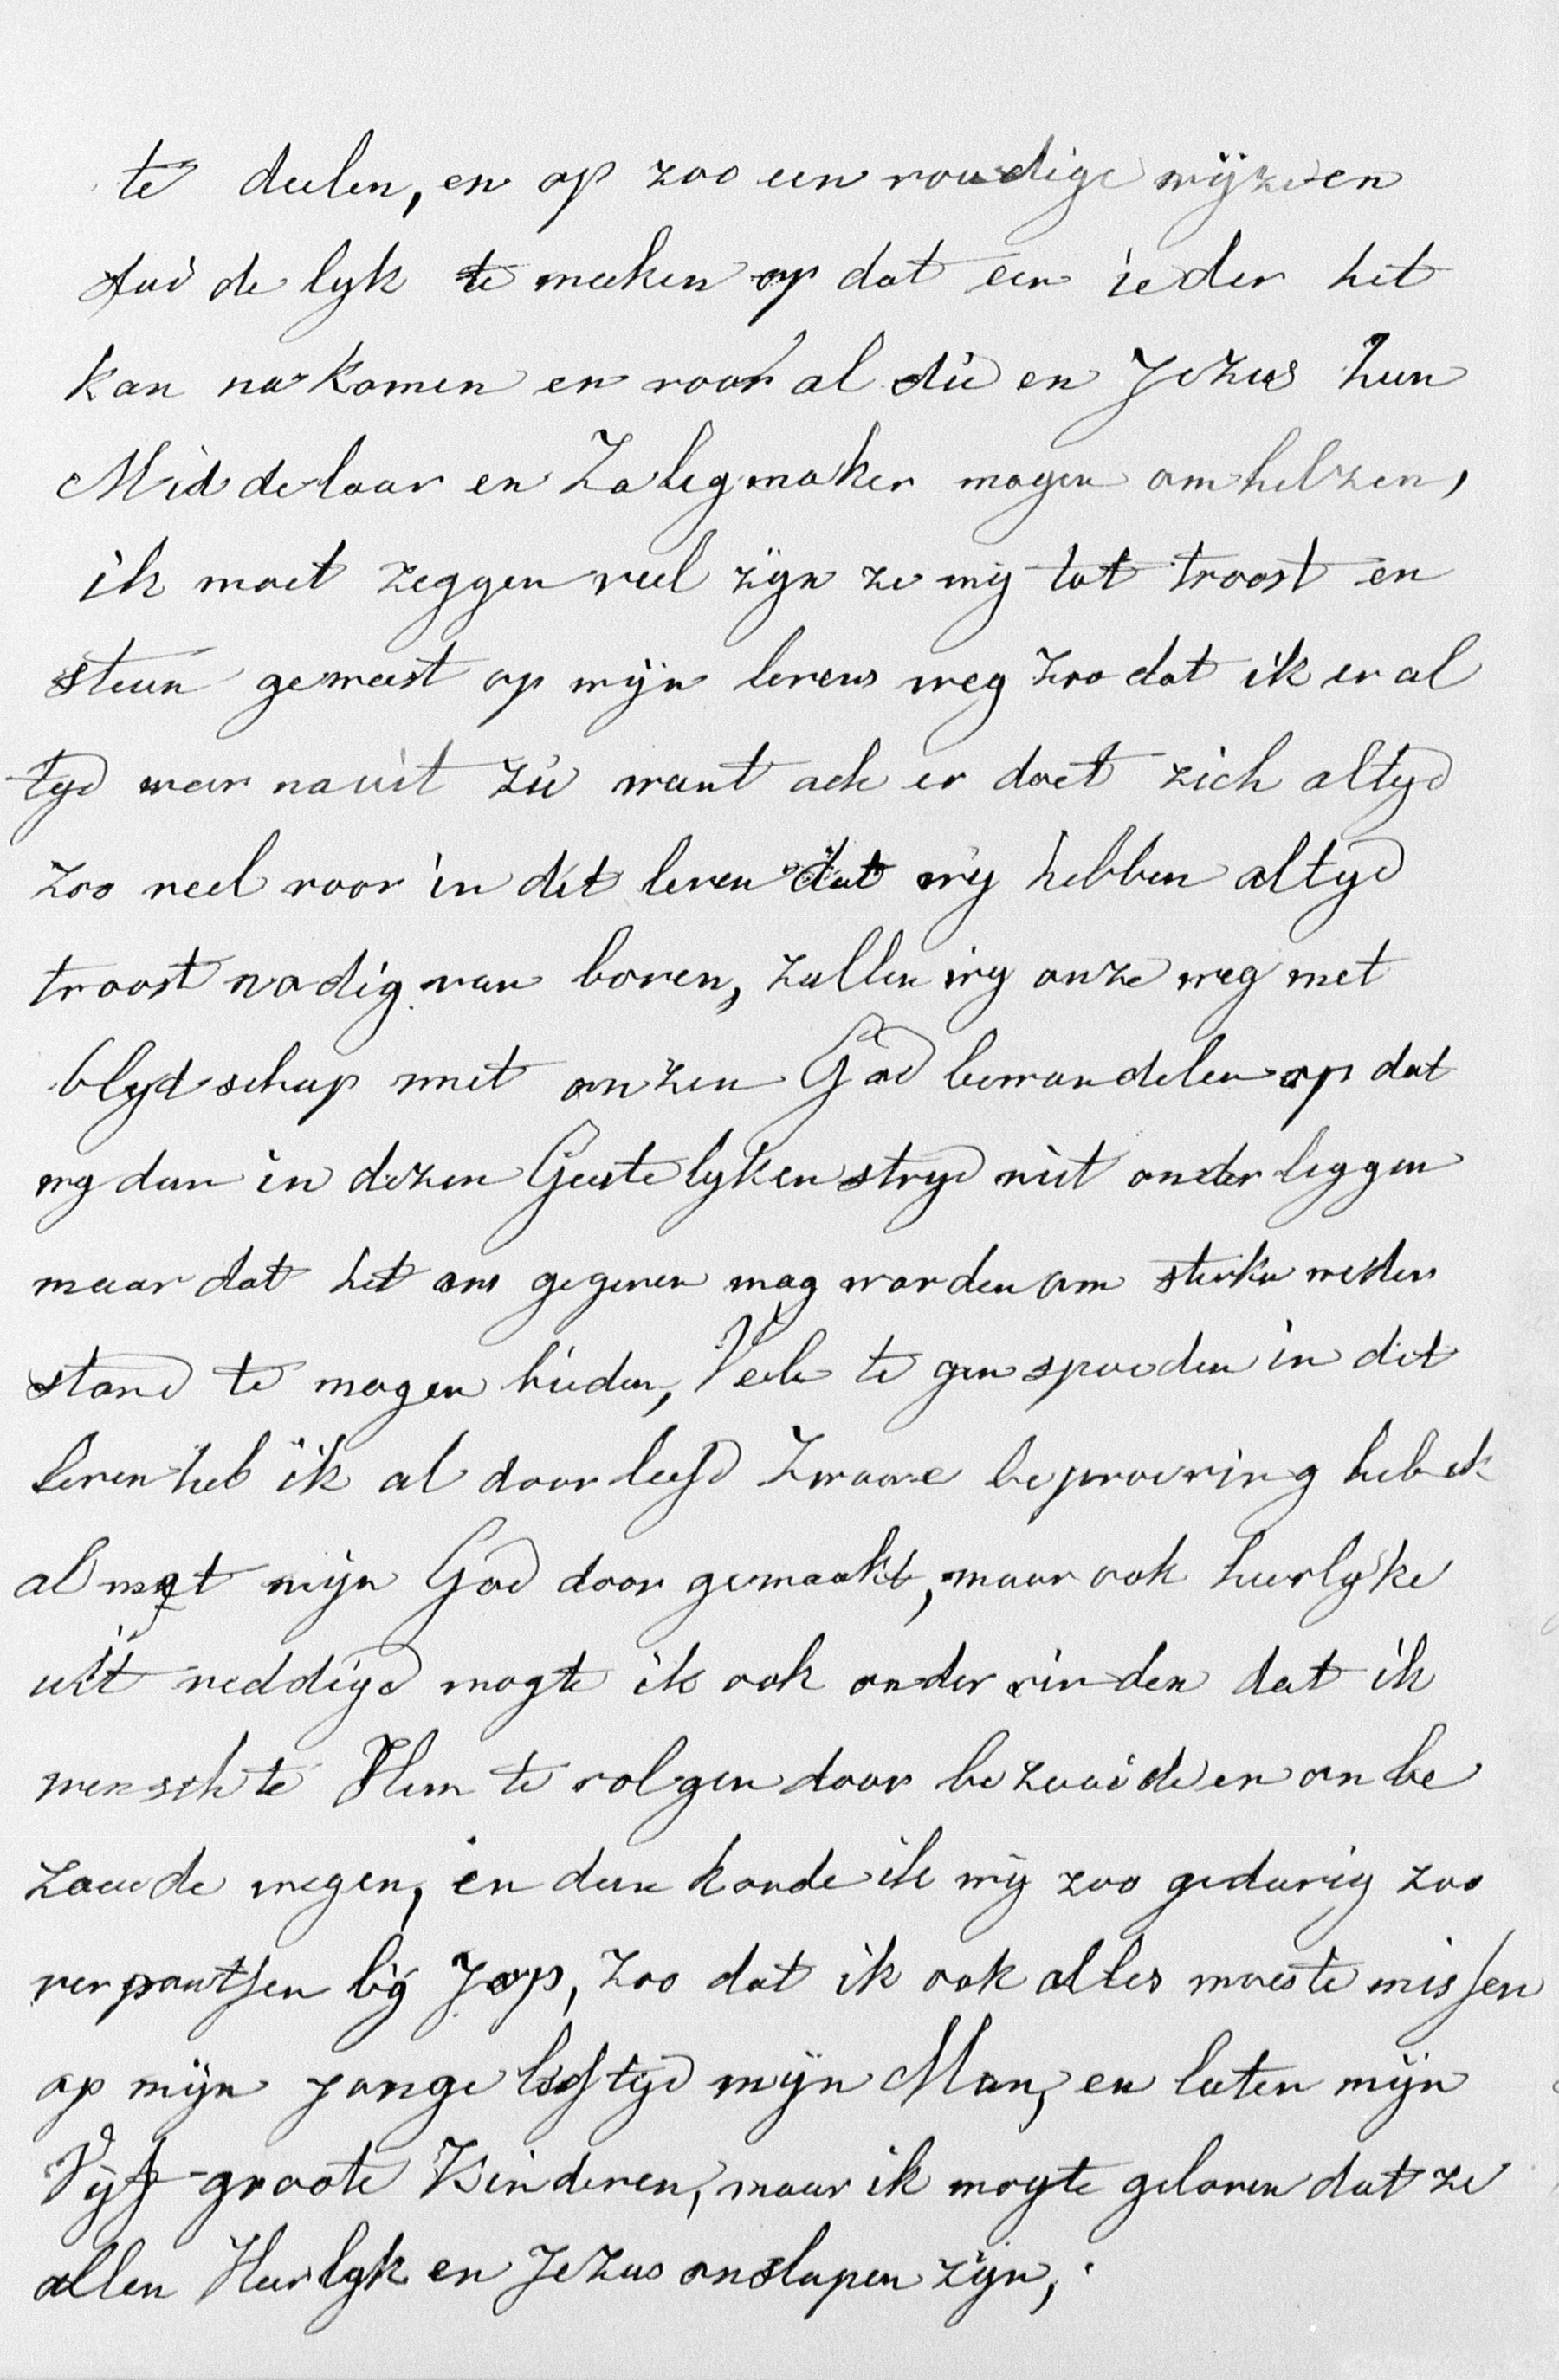 te deelen, en op zoo een voudige wijze en
dui de lyk te maeken op dat een ieder het
kan na komen en voor al die en Jezus hun
Mid de laar en Zaligmaker mogen om helzen,
ik moet zeggen veel zijn ze mij tot troost en
steun geweest op mijn levens weg zoo dat ik er al
tyd weer na uit zie want ach er doet zich altyd
zoo veel voor in dit leven dat wij hebben altyd
troost nodig van boven, zullen wy onze weg met
blydschap met onzen God bewandelen op dat
wy dan in dezen Geestelyken stryd niet onder leggen
maar dat het ons gegeven mag worden om sterke weder
stand te mogen bieden, Vele te gen spoeden in dit
leven heb ik al door leefd Zwaare beproeving heb ik
al met mijn God door gemaakt, maar ook heerlyke
uit reddigd mogte ik ook onder vinden dat ik
wenschte Hem te volgen door bezaaide en on be
zaaide wegen, en dan konde ik mij zoo gedurig zoo
verpoutsen bij Jop, zoo dat ik ook alles moeste missen
op mijn jonge leeftyd mijn Man, en laten mijn
Vyf groote Kinderen, maar ik mogte geloven dat ze
allen Heerlyk en Jezus onslapen zijn,